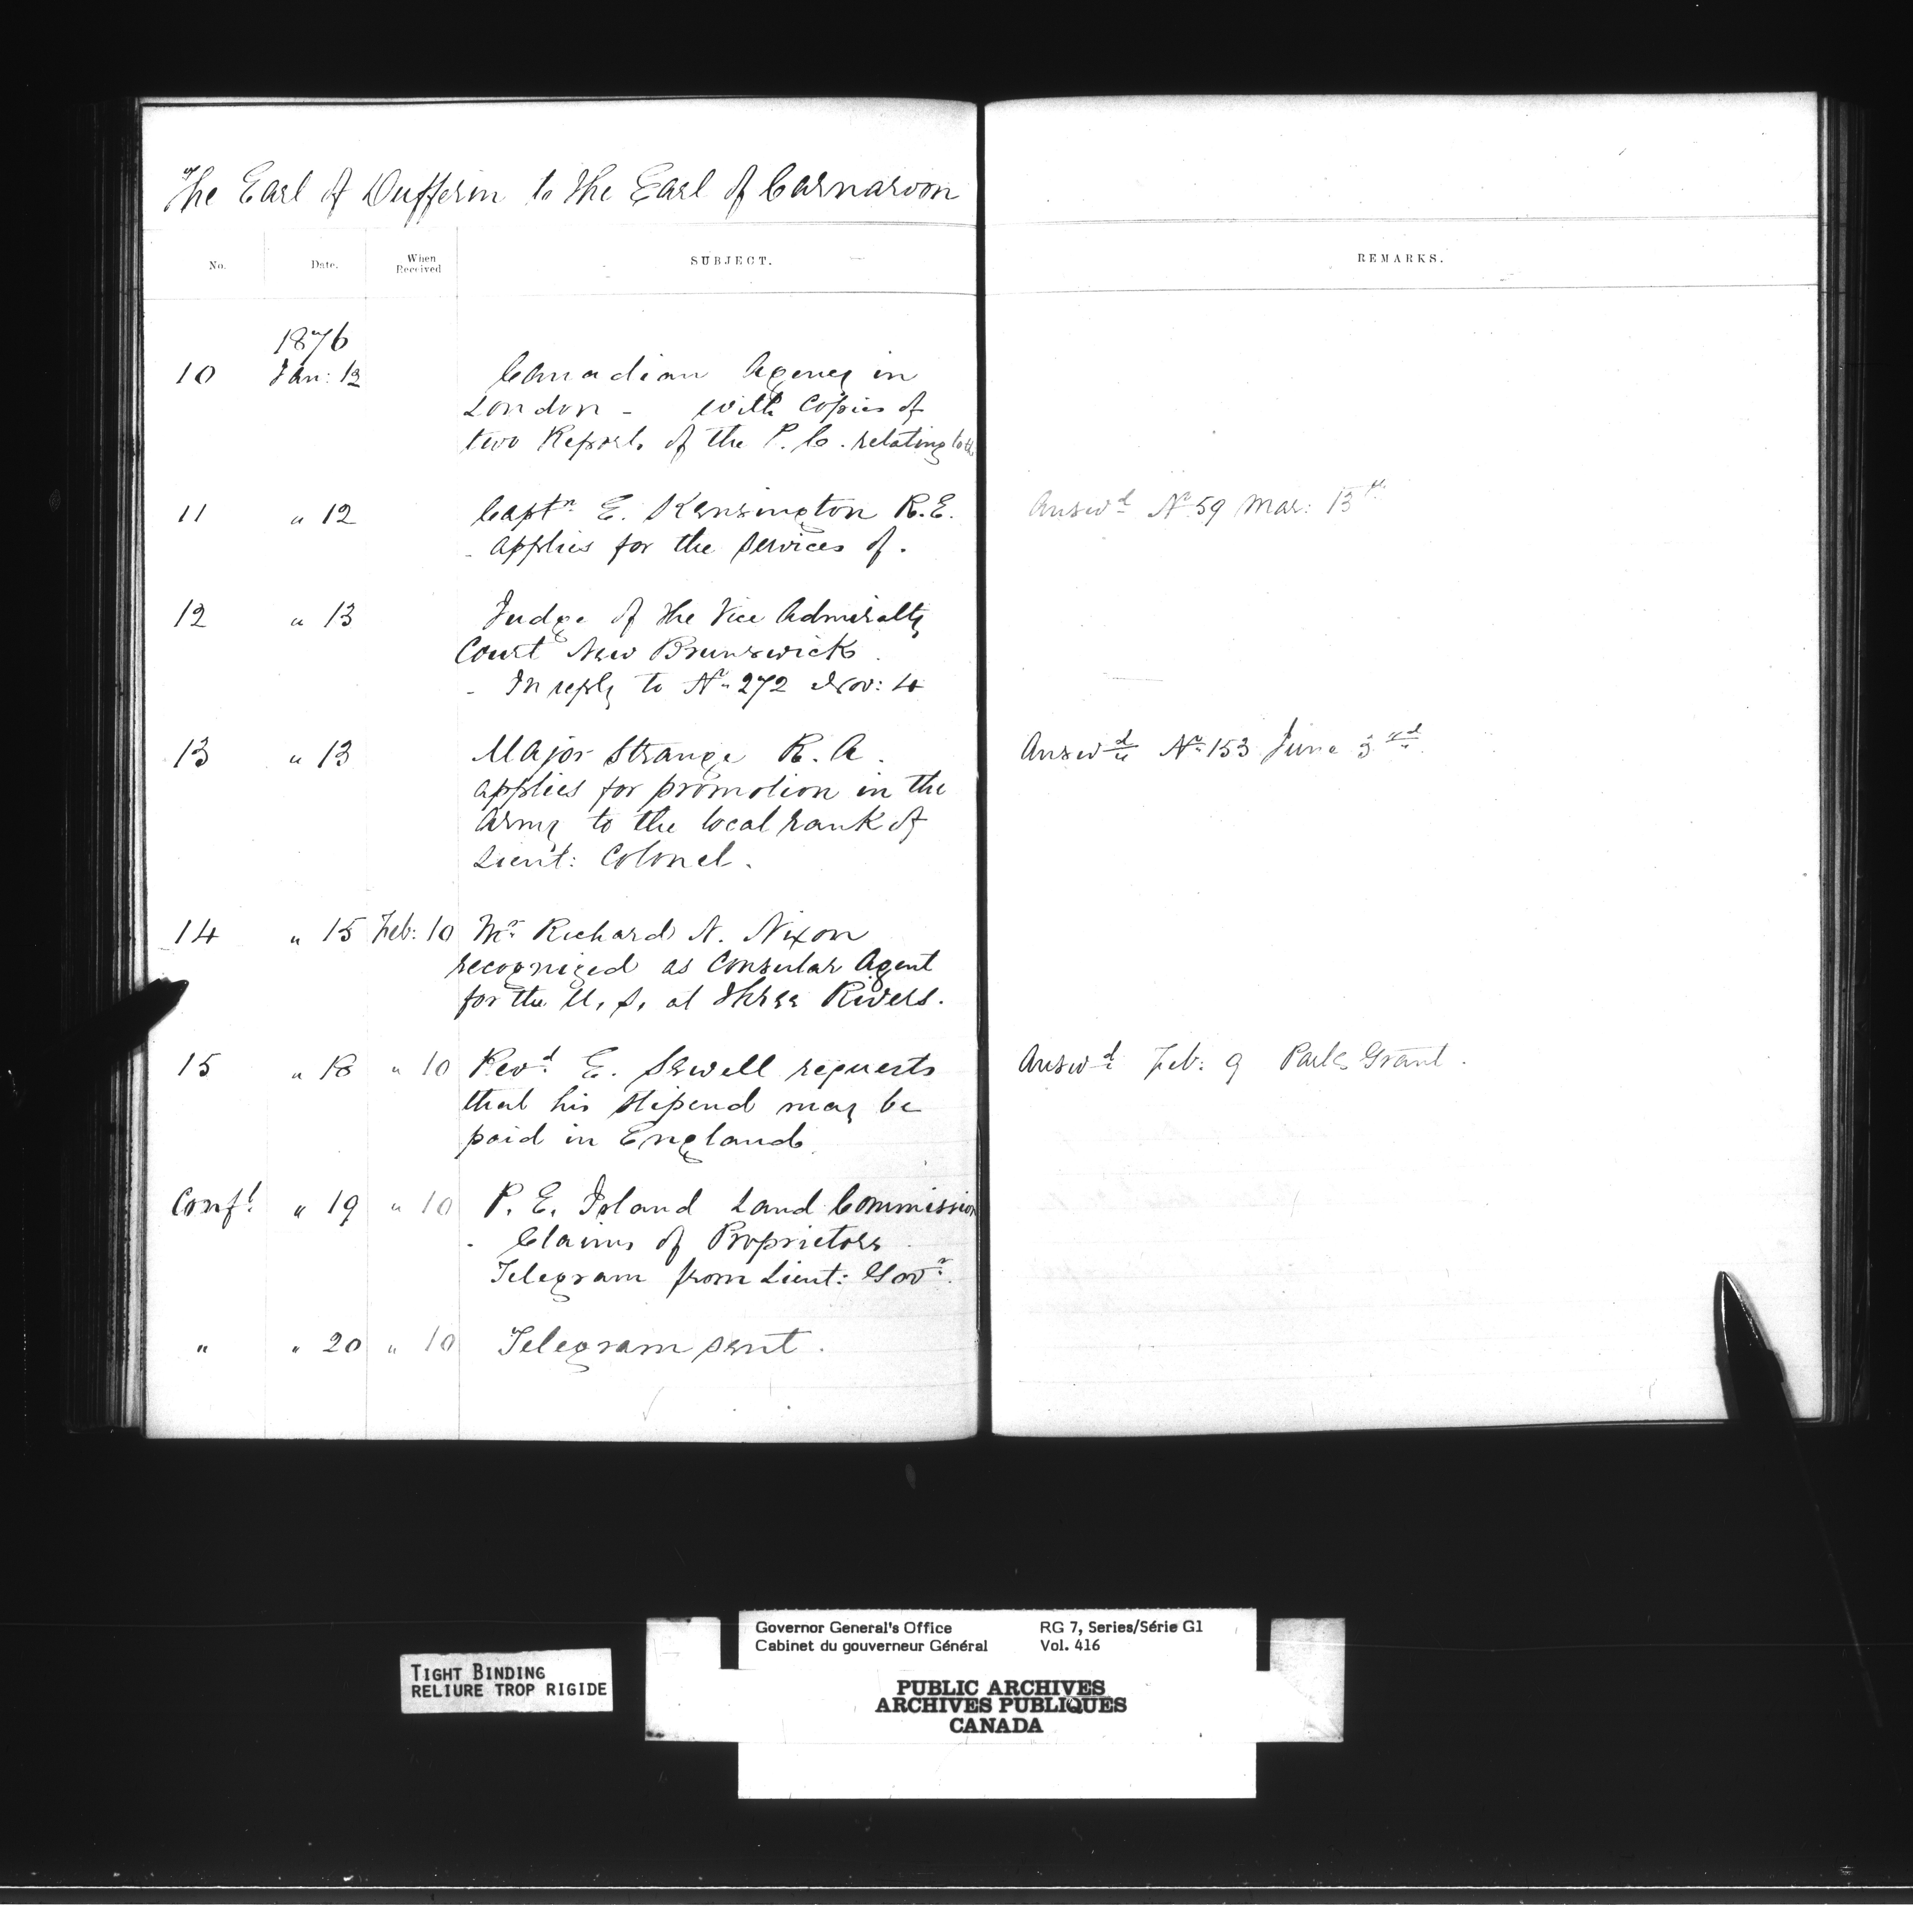 The Earl of Dufferin to the Earl of Carnarvon
No. Date. When Received SUBJECT. REMARKS.
1876
10 Jan: 12 Canadian Agency in
London - with Copies of
two Reports of the P.C. relating to
11 " 12 Captn E. Kensington R.E. Answd No 59 Mar: 13th
- applies for the services of.
12 " 13 Judge of the Vice Admiralty
Court New Brunswick.
- In reply to No 272 Nov: 4
13 " 13 Major Strange R.A. Answd No 153 June 3rd
applies for promotion in the
Army to the local rank of
Lieut: Colonel.
14 " 15 Feb: 10 Mr Richard N. Nixon
recognized as Consular Agent
for the U.S. at Three Rivers.
15 " 18 " 10 Revd E. Sewell requests Answd Feb: 9 Park Grant.
that his stipend may be
paid in England.
Confl " 19 " 10 P. E. Island Land Commission
- Claims of Proprietors.
Telegram from Lieut: Govr.
" " 20 " 10 Telegram sent.
TIGHT BINDING
RELIURE TROP RIGIDE
Governor General's Office RG 7, Series/Série G1
Cabinet du gouverneur Général Vol. 416
PUBLIC ARCHIVES
ARCHIVES PUBLIQUES
CANADA